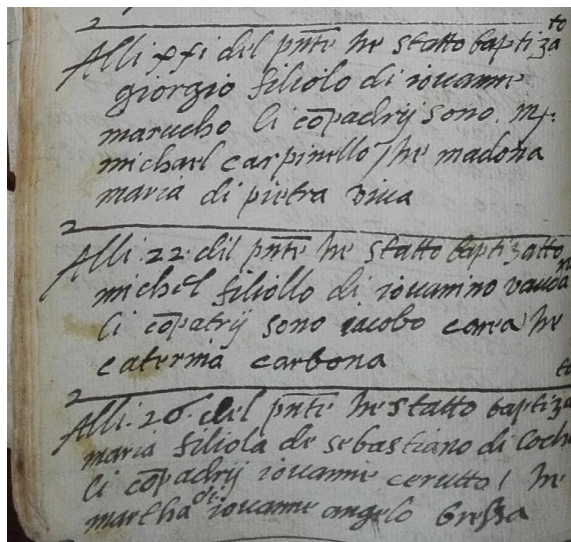 Alli xxi del pnte he statto baptizato
giorgio filiolo di iouanne
marucho li cōpadrij sono. mr.
michael carpinello / he madona
maria di pietra viua
Alli .22. dil pnte he statto baptizatto
michel filiollo di iouanno
li cōpatrij sono iacobo carea he
caterina carbona
Alli .26. del pnte he statto baptiza to
maria filiola de sebastiano di
li cōpadrij iouanne cerutto / he
martha de iouanne angelo bressa